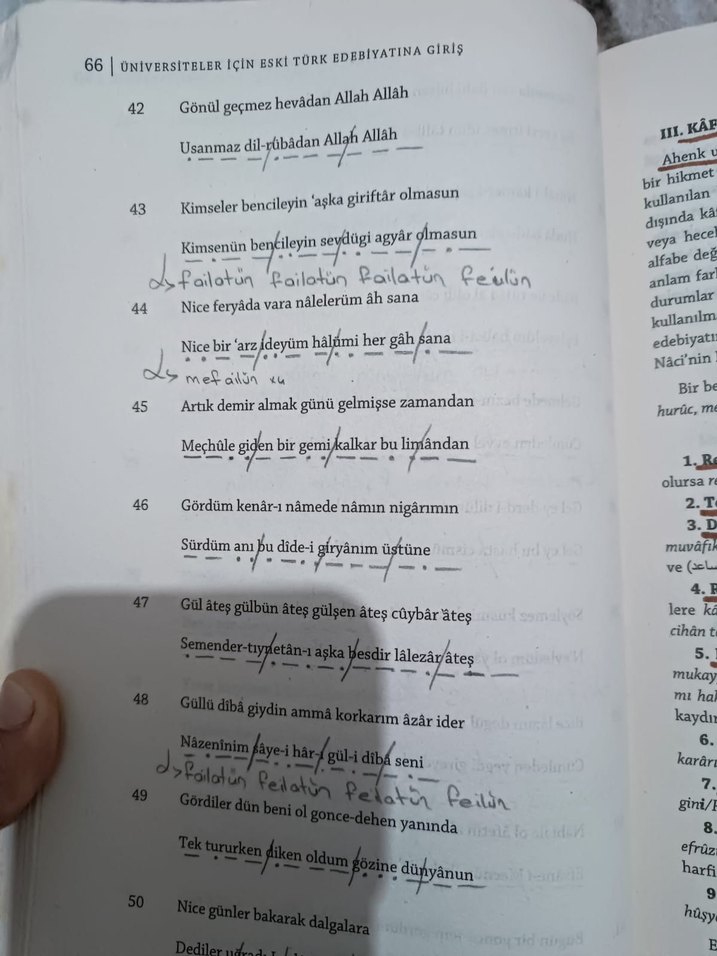 66 | ÜNİVERSİTELER İÇİN ESKİ TÜRK EDEBİYATINA GİRİŞ
42 Gönül geçmez hevâdan Allah Allâh
Usanmaz dil-rübâdan Allah Allâh
43 Kimseler bencileyin ‘aşka giriftâr olmasun
Kimsenün bencileyin sevdügi agyâr olmasun
failatün failatün failatün feilün
44 Nice feryâda vara nâlelerüm âh sana
Nice bir ‘arz ideyüm hâlümi her gâh sana
mefailün x4
45 Artık demir almak günü gelmişse zamandan
Meçhûle giden bir gemi kalkar bu limândan
46 Gördüm kenâr-ı nâmede nâmın nigârımın
Sürdüm anı bu dîde-i giryânım üstüne
47 Gül âteş gülbün âteş gülşen âteş cûybâr âteş
Semender-tıynetân-ı aşka besdir lâlezâr âteş
48 Güllü dîbâ giydin ammâ korkarım âzâr ider
Nâzenînim sâye-i hâr-ı gül-i dîbâ seni
failatün feilatün feilatün feilün
49 Gördiler dün beni ol gonce-dehen yanında
Tek tururken diken oldum gözine dünyânun
50 Nice günler bakarak dalgalara
Dediler
III. KÂF
Ahenk u
bir hikmet
kullanılan
dışında kâ
veya hecel
alfabe değ
anlam farl
durumlar
kullanılm
edebiyatır
Nâci’nin
Bir be
hurûc, me
1. Re
olursa re
2. T
3. D
muvâfık
ve
4.
lere kâ
cihân t
5.
mukay
mı hal
kaydır
6.
karârı
7.
gini/
8.
efrûz
harfi
9
hûşy